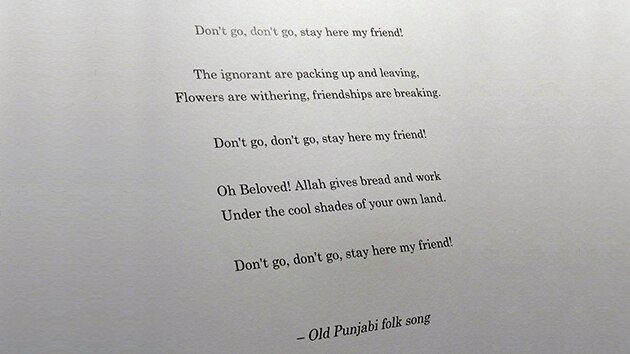 Don't go, don't go, stay here my friend!
The ignorant are packing up and leaving,
Flowers are withering, friendships are breaking.
Don't go, don't go, stay here my friend!
Oh Beloved! Allah gives bread and work
Under the cool shades of your own land.
Don't go, don't go, stay here my friend!
– Old Punjabi folk song